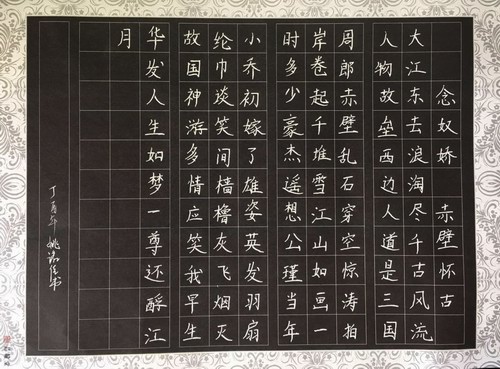 念奴娇 赤壁怀古
大江东去浪淘尽千古风流
人物故垒西边人道是三国
周郎赤壁乱石穿空惊涛拍
岸卷起千堆雪江山如画一
时多少豪杰遥想公瑾当年
小乔初嫁了雄姿英发羽扇
纶巾谈笑间樯橹灰飞烟灭
故国神游多情应笑我早生
华发人生如梦一尊还酹江
月
丁酉年 姚